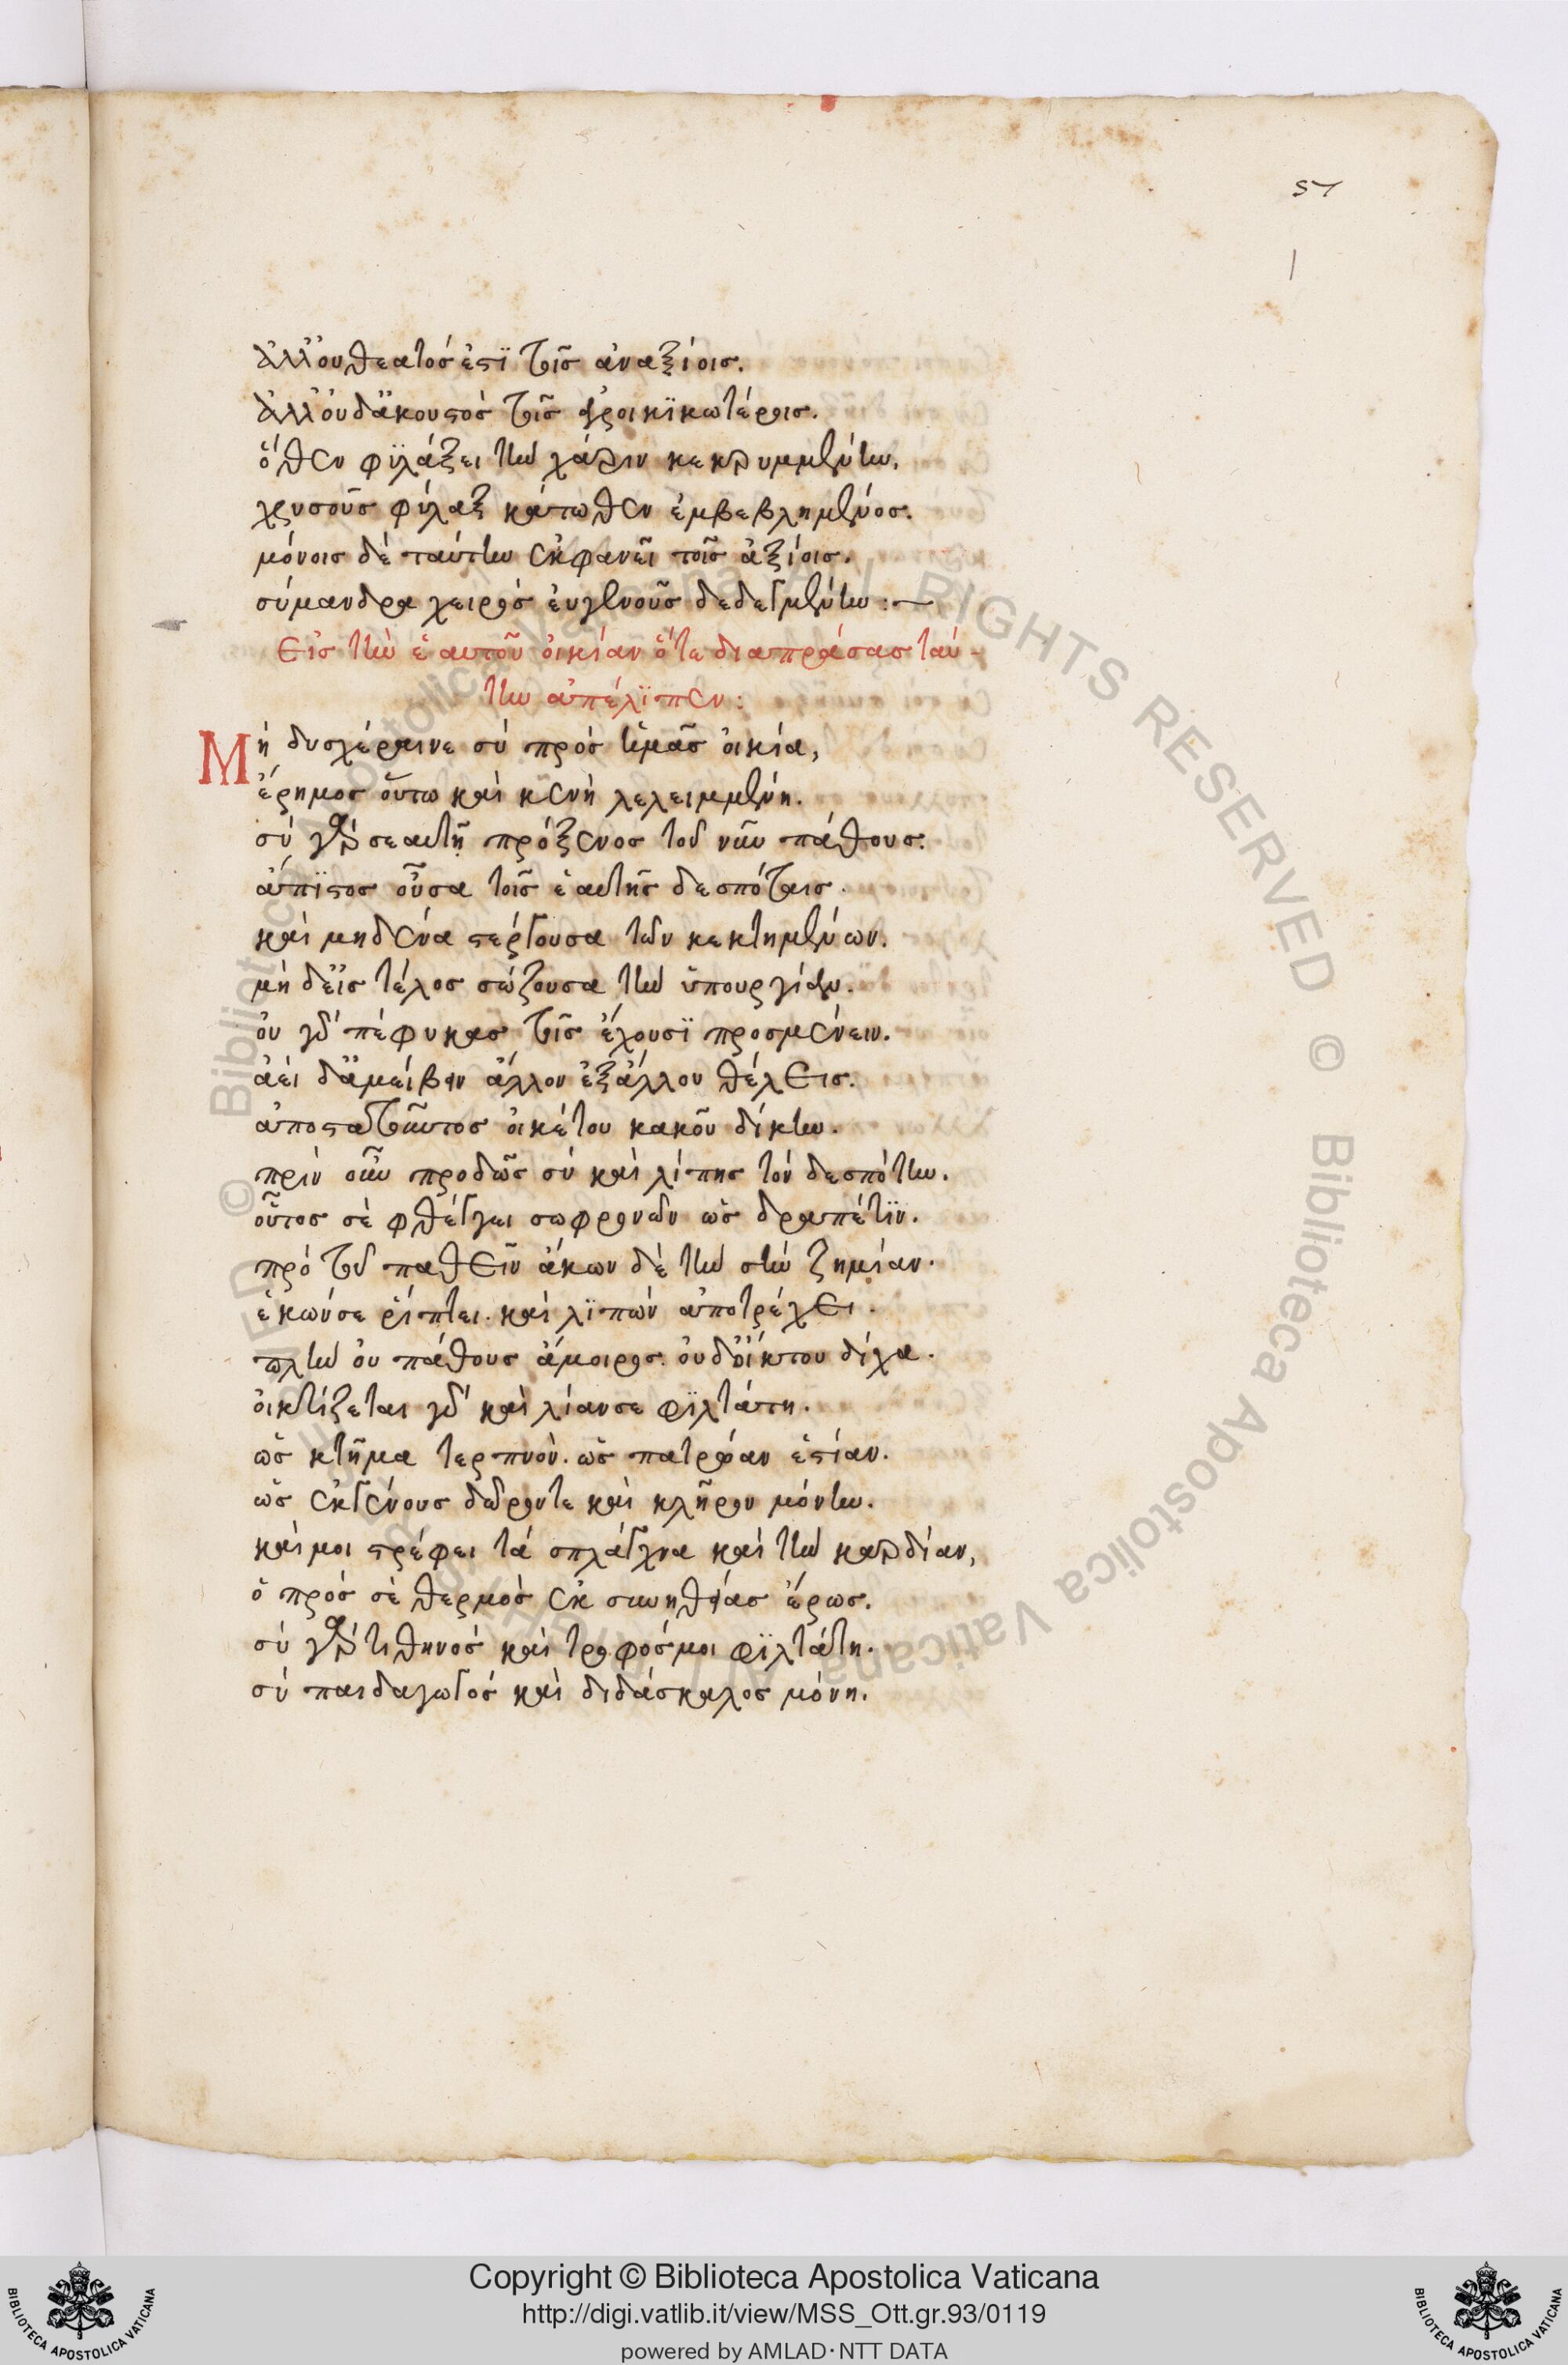 57
ἀλλ' οὐ θεατὸς ἐστὶ τοῖς ἀναξίοις.
ἀλλ' οὐδ' ἄκουστὸς τοῖς ἀγροικικωτέροις.
ὅθεν φυλάξει τὴν χάριν κεκρυμμένην,
χρυσοῦς φύλαξ κάτωθεν ἐμβεβλημένος.
μόνοις δὲ ταύτην ἐκφανεῖ τοῖς ἀξίοις.
σήμανδρα χειρὸς εὐγενοῦς δεδεγμένην :—
Εἰς τὴν ἑαυτοῦ οἰκίαν ὅτε διαπράσας ταύ-
την ἀπέλιπεν :
Μὴ δυσχέραινε σὺ πρὸς ἡμᾶς οἰκία,
ἔρημος οὕτω καὶ κενὴ λελειμμένη.
σὺ γὰρ σεαυτῇ πρόξενος τοῦ νῦν πάθους.
ἄπιστος οὖσα τοῖς ἑαυτῆς δεσπόταις.
καὶ μηδένα στέργουσα τῶν κεκτημένων.
μὴ δ' εἰς τέλος σώζουσα τὴν ὑπουργίαν.
οὐ γὰρ πέφυκας τοῖς ἔχουσι προσμένειν.
ἀεὶ δ' ἀμείβειν ἄλλον ἐξ ἄλλου θέλεις.
ἀποστατοῦντος οἰκέτου κακοῦ δίκην.
πρὶν οὖν προδῷς σὺ καὶ λίπῃς τὸν δεσπότην.
οὗτος σὲ φθέγγει σωφρονῶν ὡς δραπέτιν.
πρὸ τοῦ παθεῖν ἄκων δὲ τὴν σὴν ζημίαν.
ἑκών σε ῥίπτει. καὶ λιπὼν ἀποτρέχει.
πλὴν οὐ πάθους ἄμοιρος. οὐδ' οἴκτου δίχα.
οἰκτίζεται γὰρ καὶ λίαν σε φιλτάτη.
ὡς κτῆμα τερπνὸν. ὡς πατρῴαν ἑστίαν.
ὡς ἐκ γένους δῶρόν τε καὶ κλῆρον μόνην.
καί μοι στρέφει τὰ σπλάγχνα καὶ τὴν καρδίαν,
ὁ πρὸς σὲ θερμὸς ἐκ συνηθείας ἔρως.
σὺ γὰρ τιθηνὸς καὶ τροφός μοι φιλτάτη.
σὺ παιδαγωγὸς καὶ διδάσκαλος μόνη.
© Biblioteca Apostolica Vaticana ALL RIGHTS RESERVED © Biblioteca Apostolica Vaticana ALL RIGHTS RESERVED
Copyright © Biblioteca Apostolica Vaticana
http://digi.vatlib.it/view/MSS_Ott.gr.93/0119
powered by AMLAD·NTT DATA
BIBLIOTECA APOSTOLICA VATICANA
BIBLIOTECA APOSTOLICA VATICANA